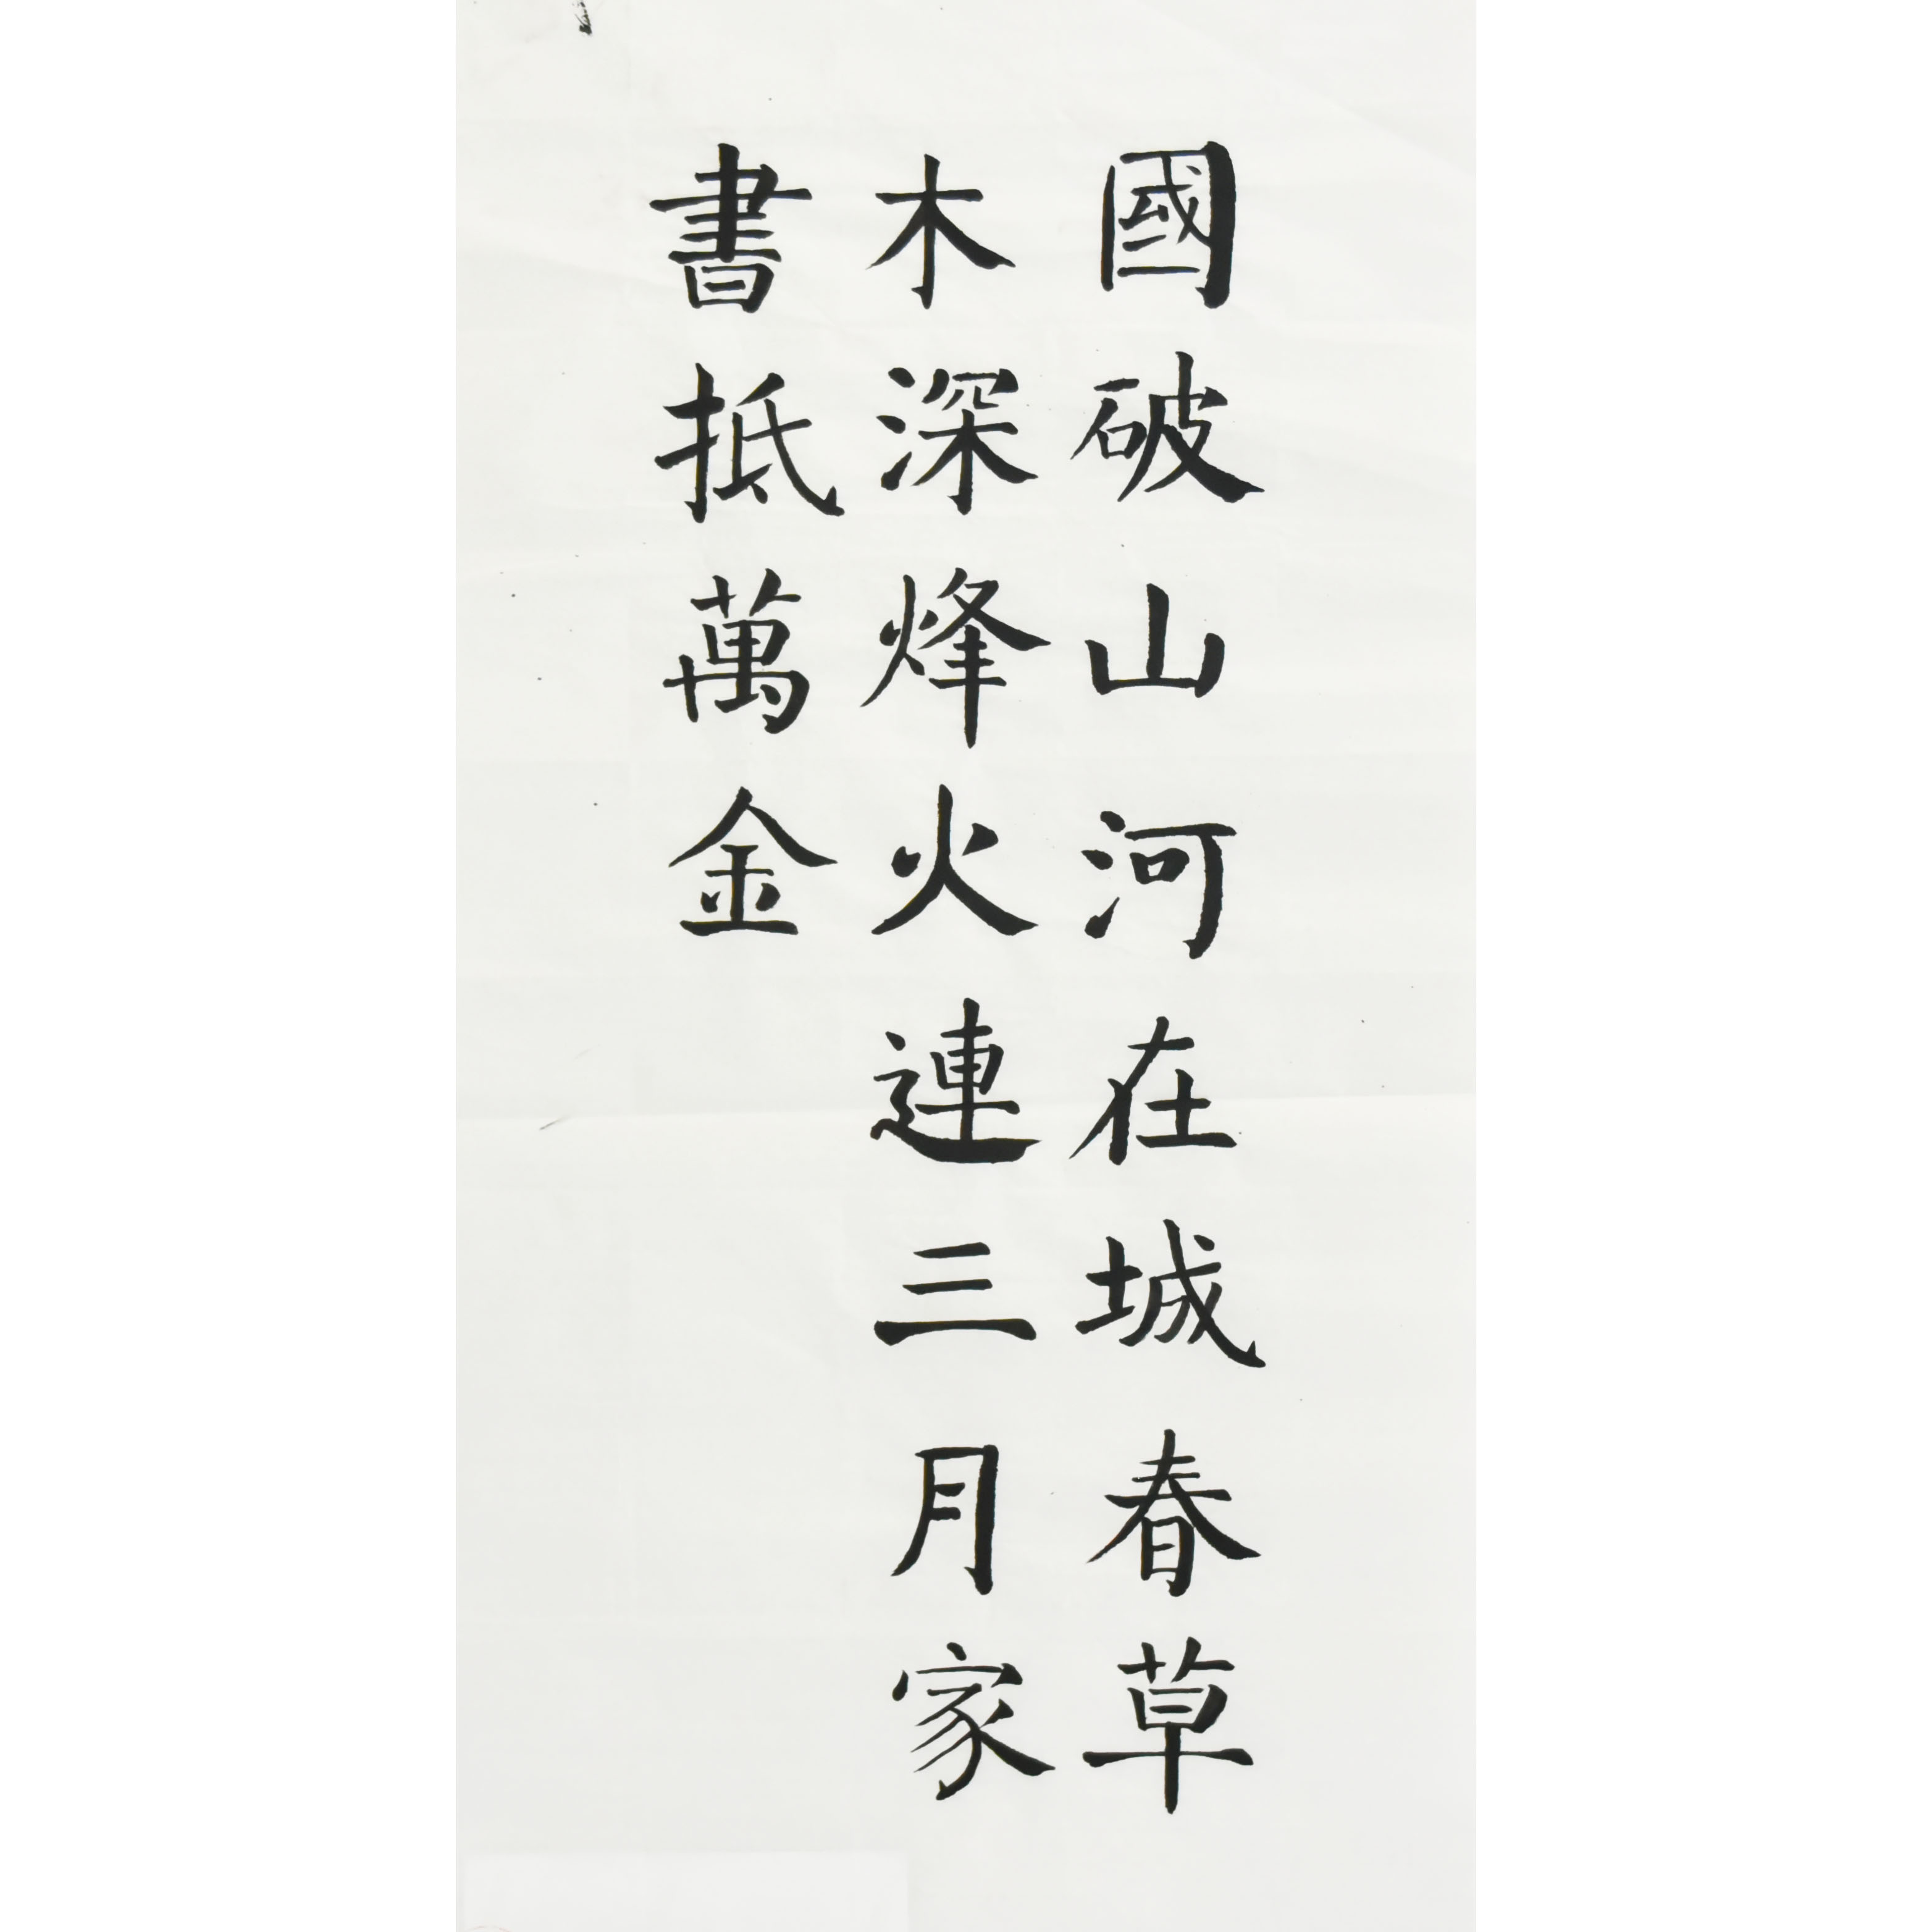 國破山河在城春草
木深烽火連三月家
書抵萬金